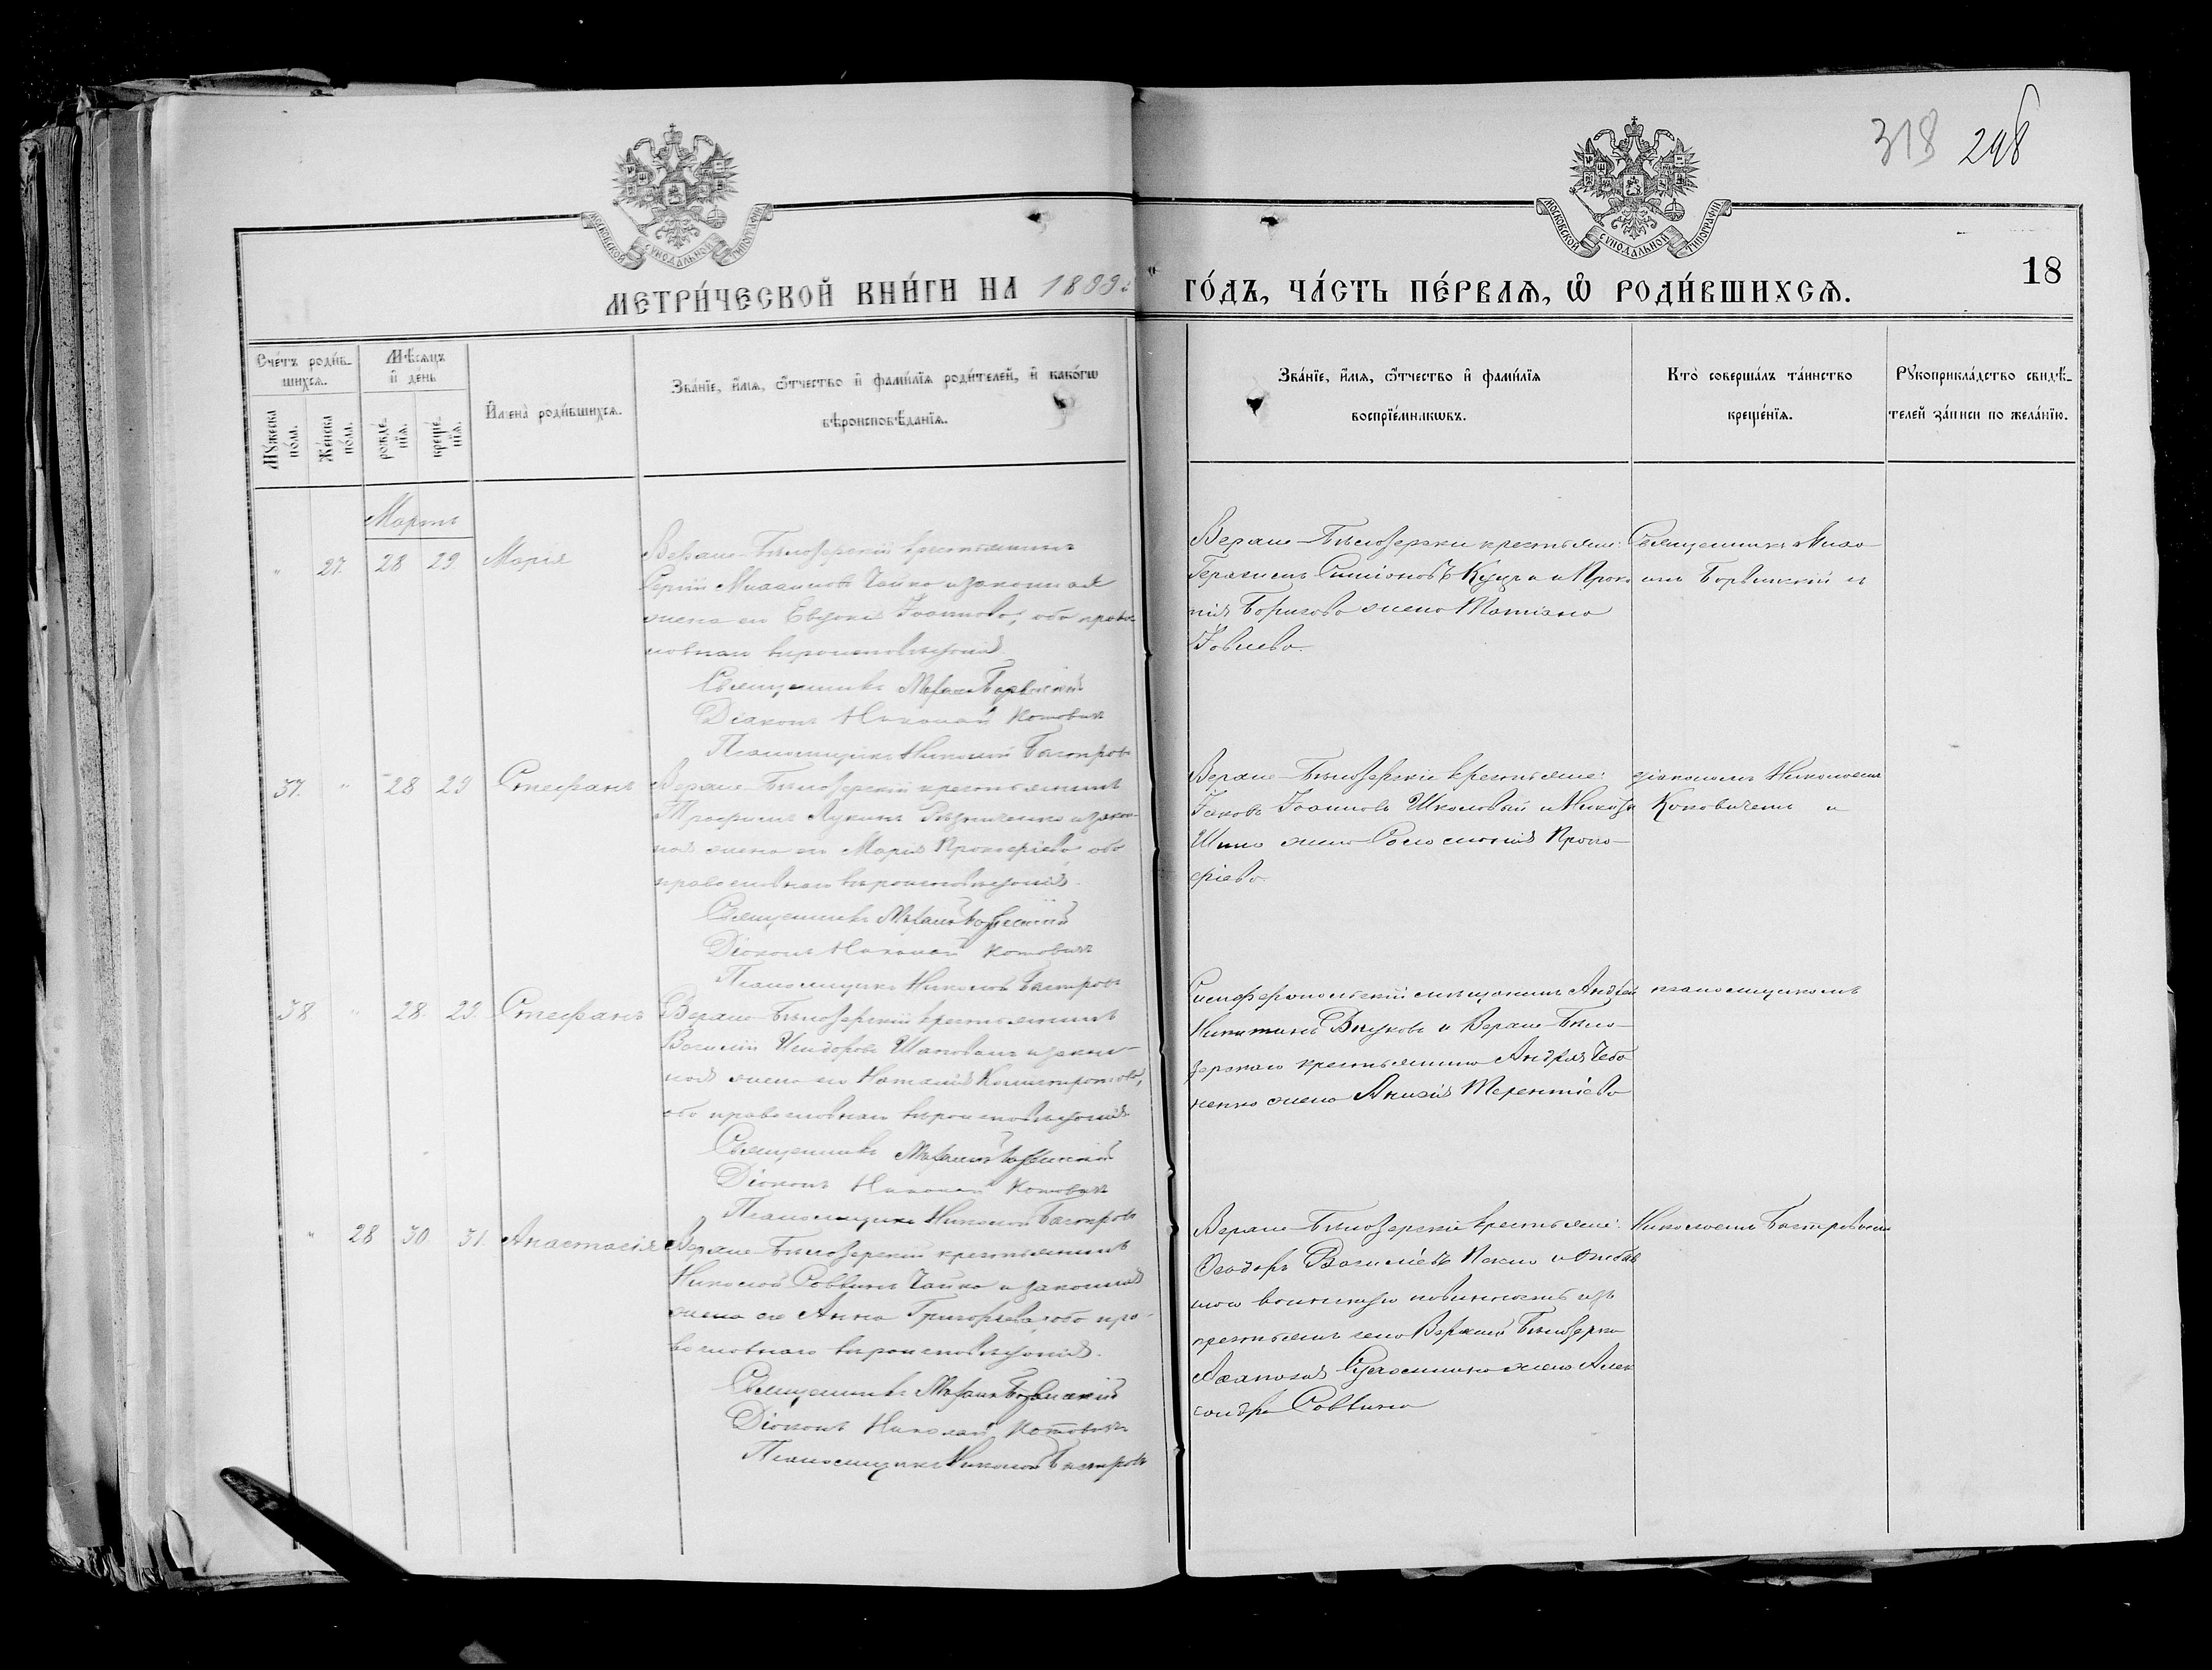 318 298
МОСКОВСКОЙ СѴНОДАЛЬНОЙ ТИПОГРАФІИ
МОСКОВСКОЙ СѴНОДАЛЬНОЙ ТИПОГРАФІИ
МЕТРИ́ЧЕСКОЙ КНИ́ГИ НА 1899
ГО́ДЪ, ЧА́СТЬ ПЕ́РВАѦ, Ѡ РОДИ́ВШИХСѦ.
18
Сче́тъ роди́в-
шихсѧ.
Мꙋ́жеска
по́ла.
Же́нска
по́ла.
Мѣ́сѧцъ
и҆ день
рожде́-
нїѧ.
креще́-
нїѧ.
И҆мена̀ роди́вшихсѧ.
Зва́нїе, и҆́мѧ, ѻ҆́тчество и҆ фами́лїѧ роди́телей, и҆ како́гѡ
вѣроисповѣ́данїѧ.
Зва́нїе, и҆́мѧ, ѻ҆́тчество и҆ фами́лїѧ
воспрїе́мникѡвъ.
Кто̀ соверша́лъ та́инство
креще́нїѧ.
Рꙋкоприкла́дство свидѣ́-
телей за́писи по жела́нїю.
Мартъ
" 27. 28 29 Марія
Верхне-Бѣлозерскій крестьянинъ
Сергій Чайко и законная
жена его Евдокія Іоаннова, оба право
славнаго вѣроисповѣданія
Священникъ
Діаконъ Николай Котовичъ
Псаломщикъ Николай Бастровъ
Верхне-Бѣлозерскіе крестьяне:
Герасимъ Симіоновъ Куцъ и Проко
пія Борисова жена Татіана
Іовлева.
Священникъ
и
37. " 28 29 Стефанъ
Верхне-Бѣлозерскій крестьянинъ
Трофимъ Лукинъ Рѣзниченко и закон-
ная жена его Марія Прокофіева, оба
православнаго вѣроисповѣданія.
Священникъ
Діаконъ Николай Котовичъ
Псаломщикъ Николай Бастровъ
Верхне-Бѣлозерскіе крестьяне:
Іаковъ Іоанновъ Школовый и
жена Соломонія Проко-
фіева.
діакономъ Николаемъ
Котовичемъ и
38. " 28. 29. Стефанъ
Верхне-Бѣлозерскій крестьянинъ
Василій Исидоровъ Шаповалъ и закон-
ная жена его Наталія
оба православнаго вѣроисповѣданія.
Священникъ
Діаконъ Николай Котовичъ
Псаломщикъ Николай Бастровъ
Симферопольскій мѣщанинъ Андрей
Никитинъ Внуковъ и Верхне-Бѣло-
зерскаго крестьянина Андрея Чебо
ненко жена Анисія Терентіева
псаломщикомъ
" 28 30 31. Анастасія
Верхне-Бѣлозерскій крестьянинъ
Николай Саввинъ Чайко и законная
жена его Анна Григорьева, оба пра-
вославнаго вѣроисповѣданія.
Священникъ
Діаконъ Николай Котовичъ
Псаломщикъ Николай Бастровъ
Верхне-Бѣлозерскіе крестьяне:
Ѳеодоръ Васильевъ и отбыв
шаго воинскую повинность изъ
крестьянъ села Верхней Бѣлозерки
жена Алек
сандра Саввина
Николаемъ Бастровымъ